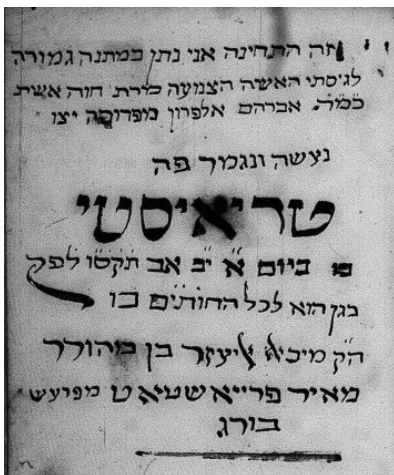 זה התחינה אני נתן במתנה גמורה
לגיסתי האשה הצנועה מרת חוה אשת
כמה״ אברהם אלפרון מפרוסה יצו
נעשה ונגמר פה
טריאיסטי
ביום א יב אב תקסו לפק
כגן הוא לכל החותים בו
הק מיכל אליעזר בן מהורר
מאיר פרייאשטאט מפרעש
בורג